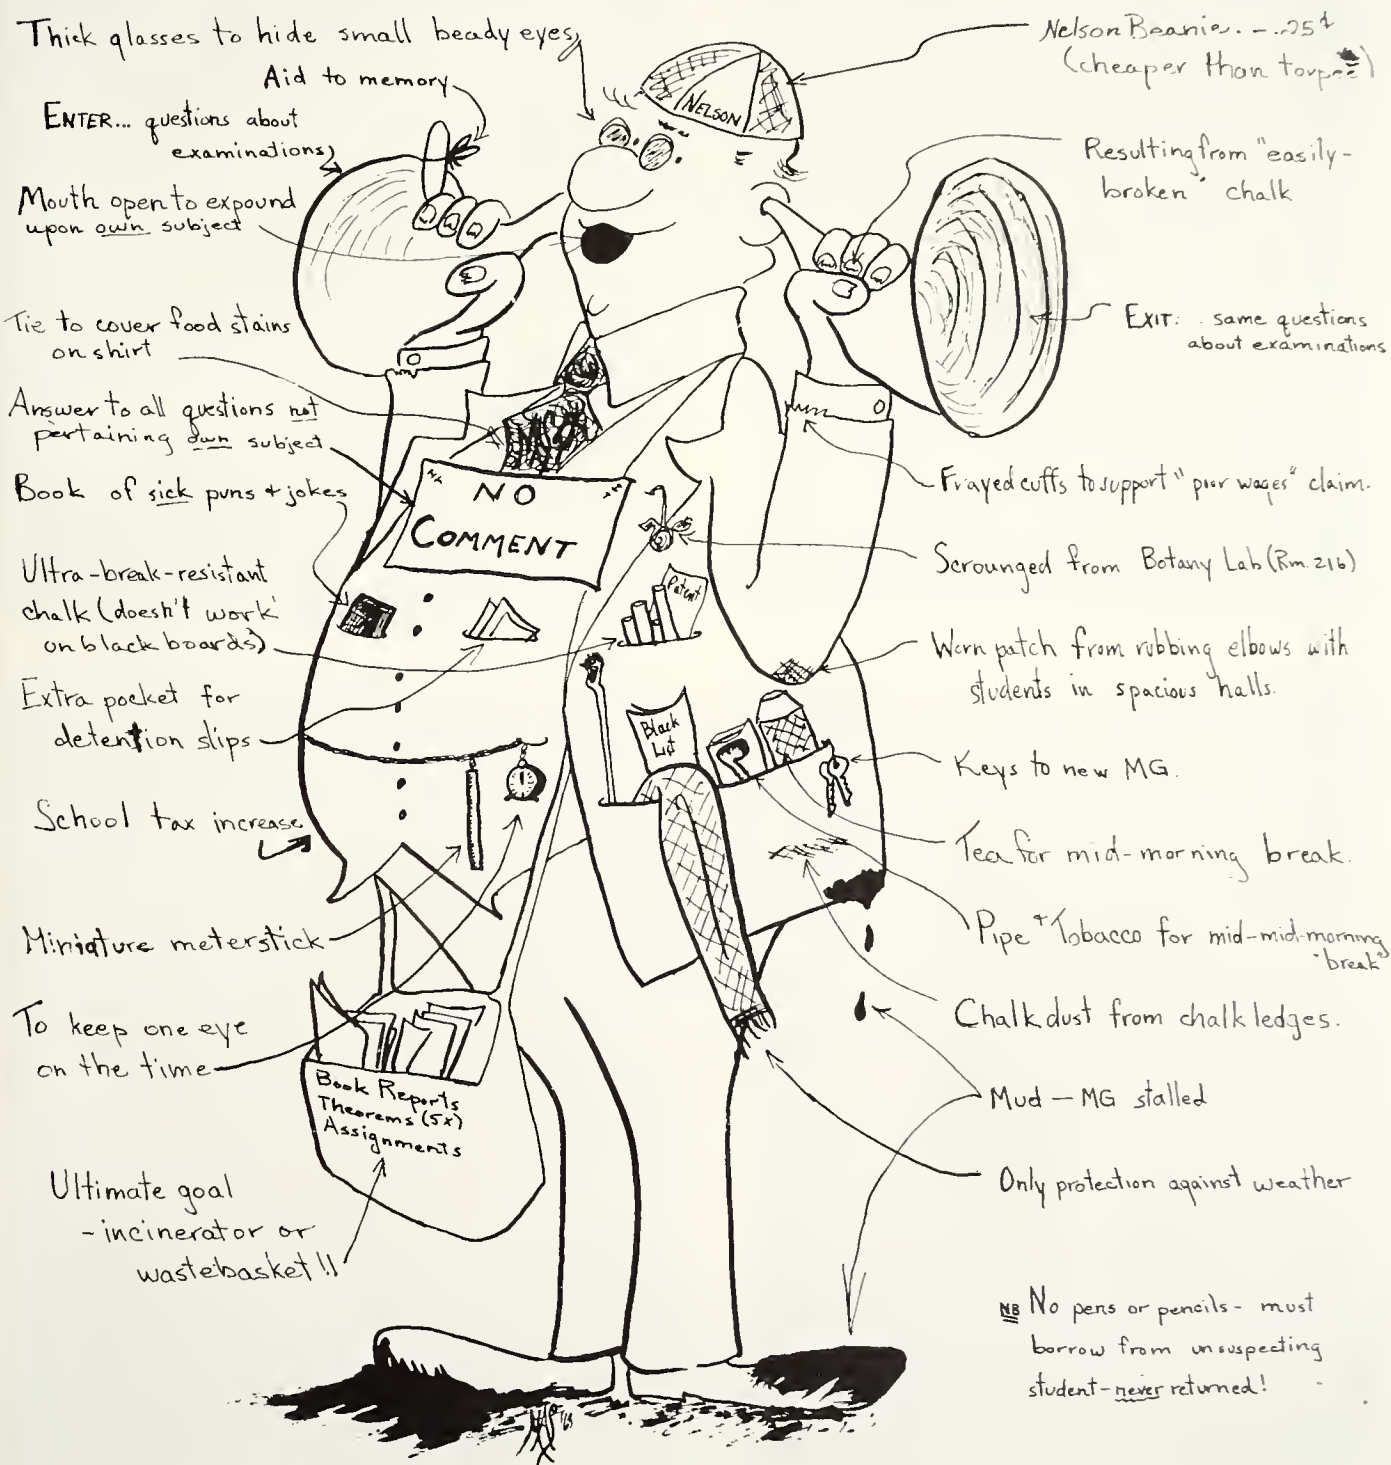 Thick glasses to hide small beady eyes
Aid to memory
ENTER... questions about
examinations
Mouth open to expound
upon own subject
Tie to cover food stains
on shirt
Answer to all questions not
pertaining own subject
Book of sick puns + jokes
Ultra-break-resistant
chalk (doesn't work
on black boards)
Extra pocket for
detention slips
School tax increase
Miniature meterstick
To keep one eye
on the time
Ultimate goal
- incinerator or
wastebasket!!
NELSON
NO
COMMENT
Patent
Black
List
Book Reports
Theorems (5x)
Assignments
Nelson Beanie. - .25¢
(cheaper than toupee)
Resulting from "easily-
broken" chalk
EXIT: same questions
about examinations
Frayed cuffs to support "poor wages" claim.
Scrounged from Botany Lab (Rm. 216)
Worn patch from rubbing elbows with
students in spacious halls.
Keys to new MG.
Tea for mid-morning break.
Pipe + Tobacco for mid-mid-morning
"break"
Chalk dust from chalk ledges.
Mud - MG stalled
Only protection against weather
NB No pens or pencils - must
borrow from unsuspecting
student - never returned!